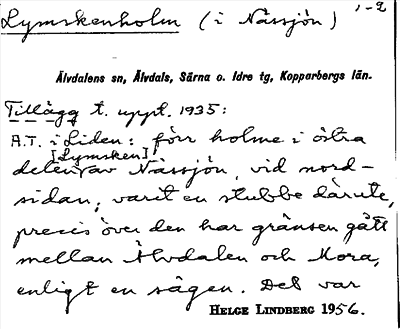 Lymskenholm (i Nässjön) 1-2
Älvdalens sn, Älvdals, Särna o. Idre tg, Kopparbergs län.
Tillägg t. uppt. 1935:
A.T. i Liden: förr holme i östra
[Lymsken]
delen av Nässjön, vid nord-
sidan; varit en stubbe därute,
precis över den har gränsen gått
mellan Älvdalen och Mora,
enligt en sägen. Det var
HELGE LINDBERG 1956.